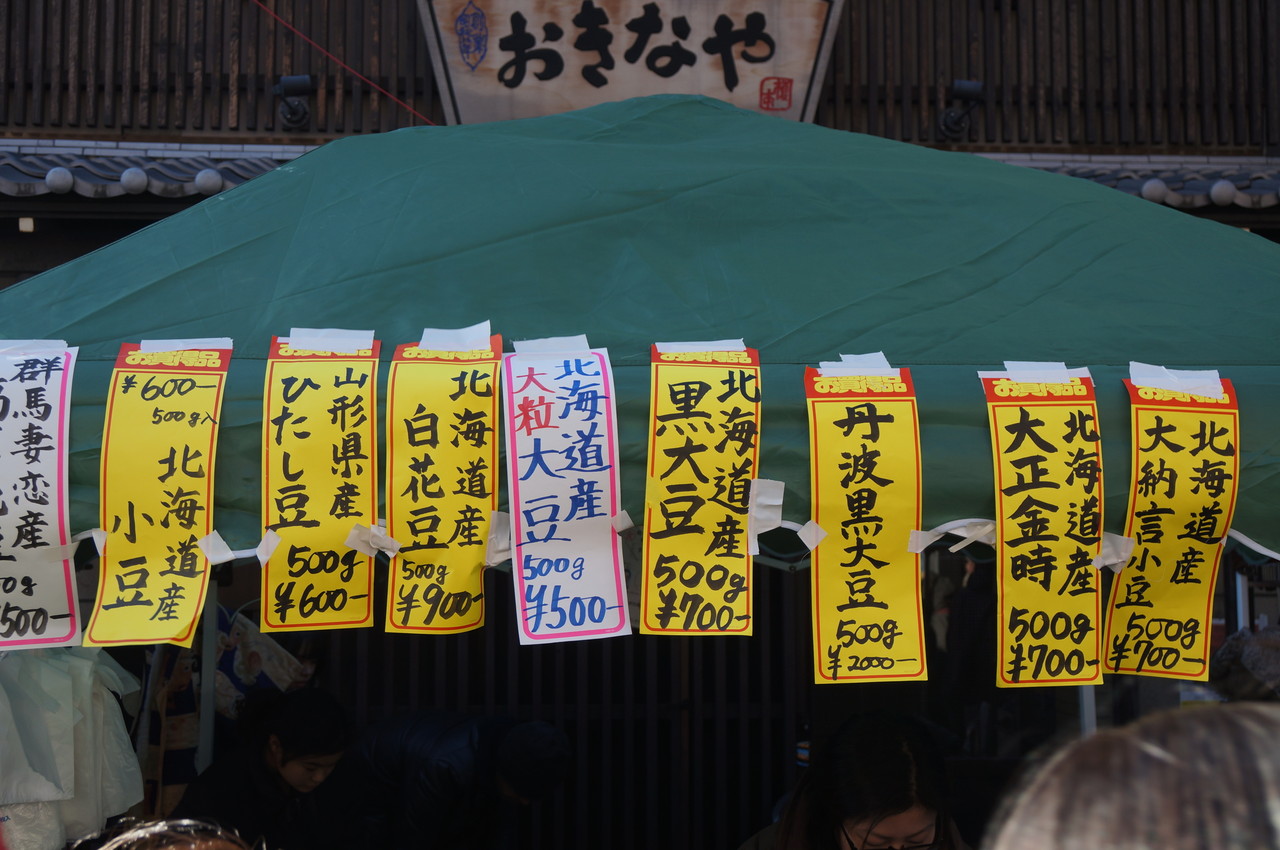 おきなや
群馬妻恋産
500-
お買得品
¥600-
500g入
北海道産
小豆
お買得品
山形県産
ひたし豆
500g
¥600-
お買得品
北海道産
白花豆
500g
¥900-
北海道産
大粒大豆
500g
¥500-
お買得品
北海道産
黒大豆
500g
¥700-
お買得品
丹波黒大豆
500g
¥2000-
お買得品
北海道産
大正金時
500g
¥700-
お買得品
北海道産
大納言小豆
500g
¥700-